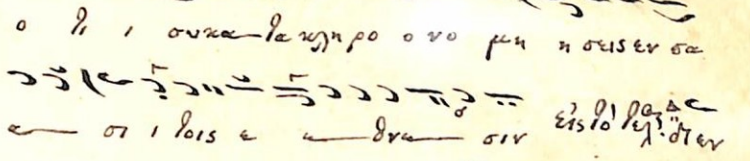 ο τι ι συ κα τα κλη ρο ο νο μη η σεις εν σα
α σι ι τοις ε α θνα σιν εἰς τὸ τελ.